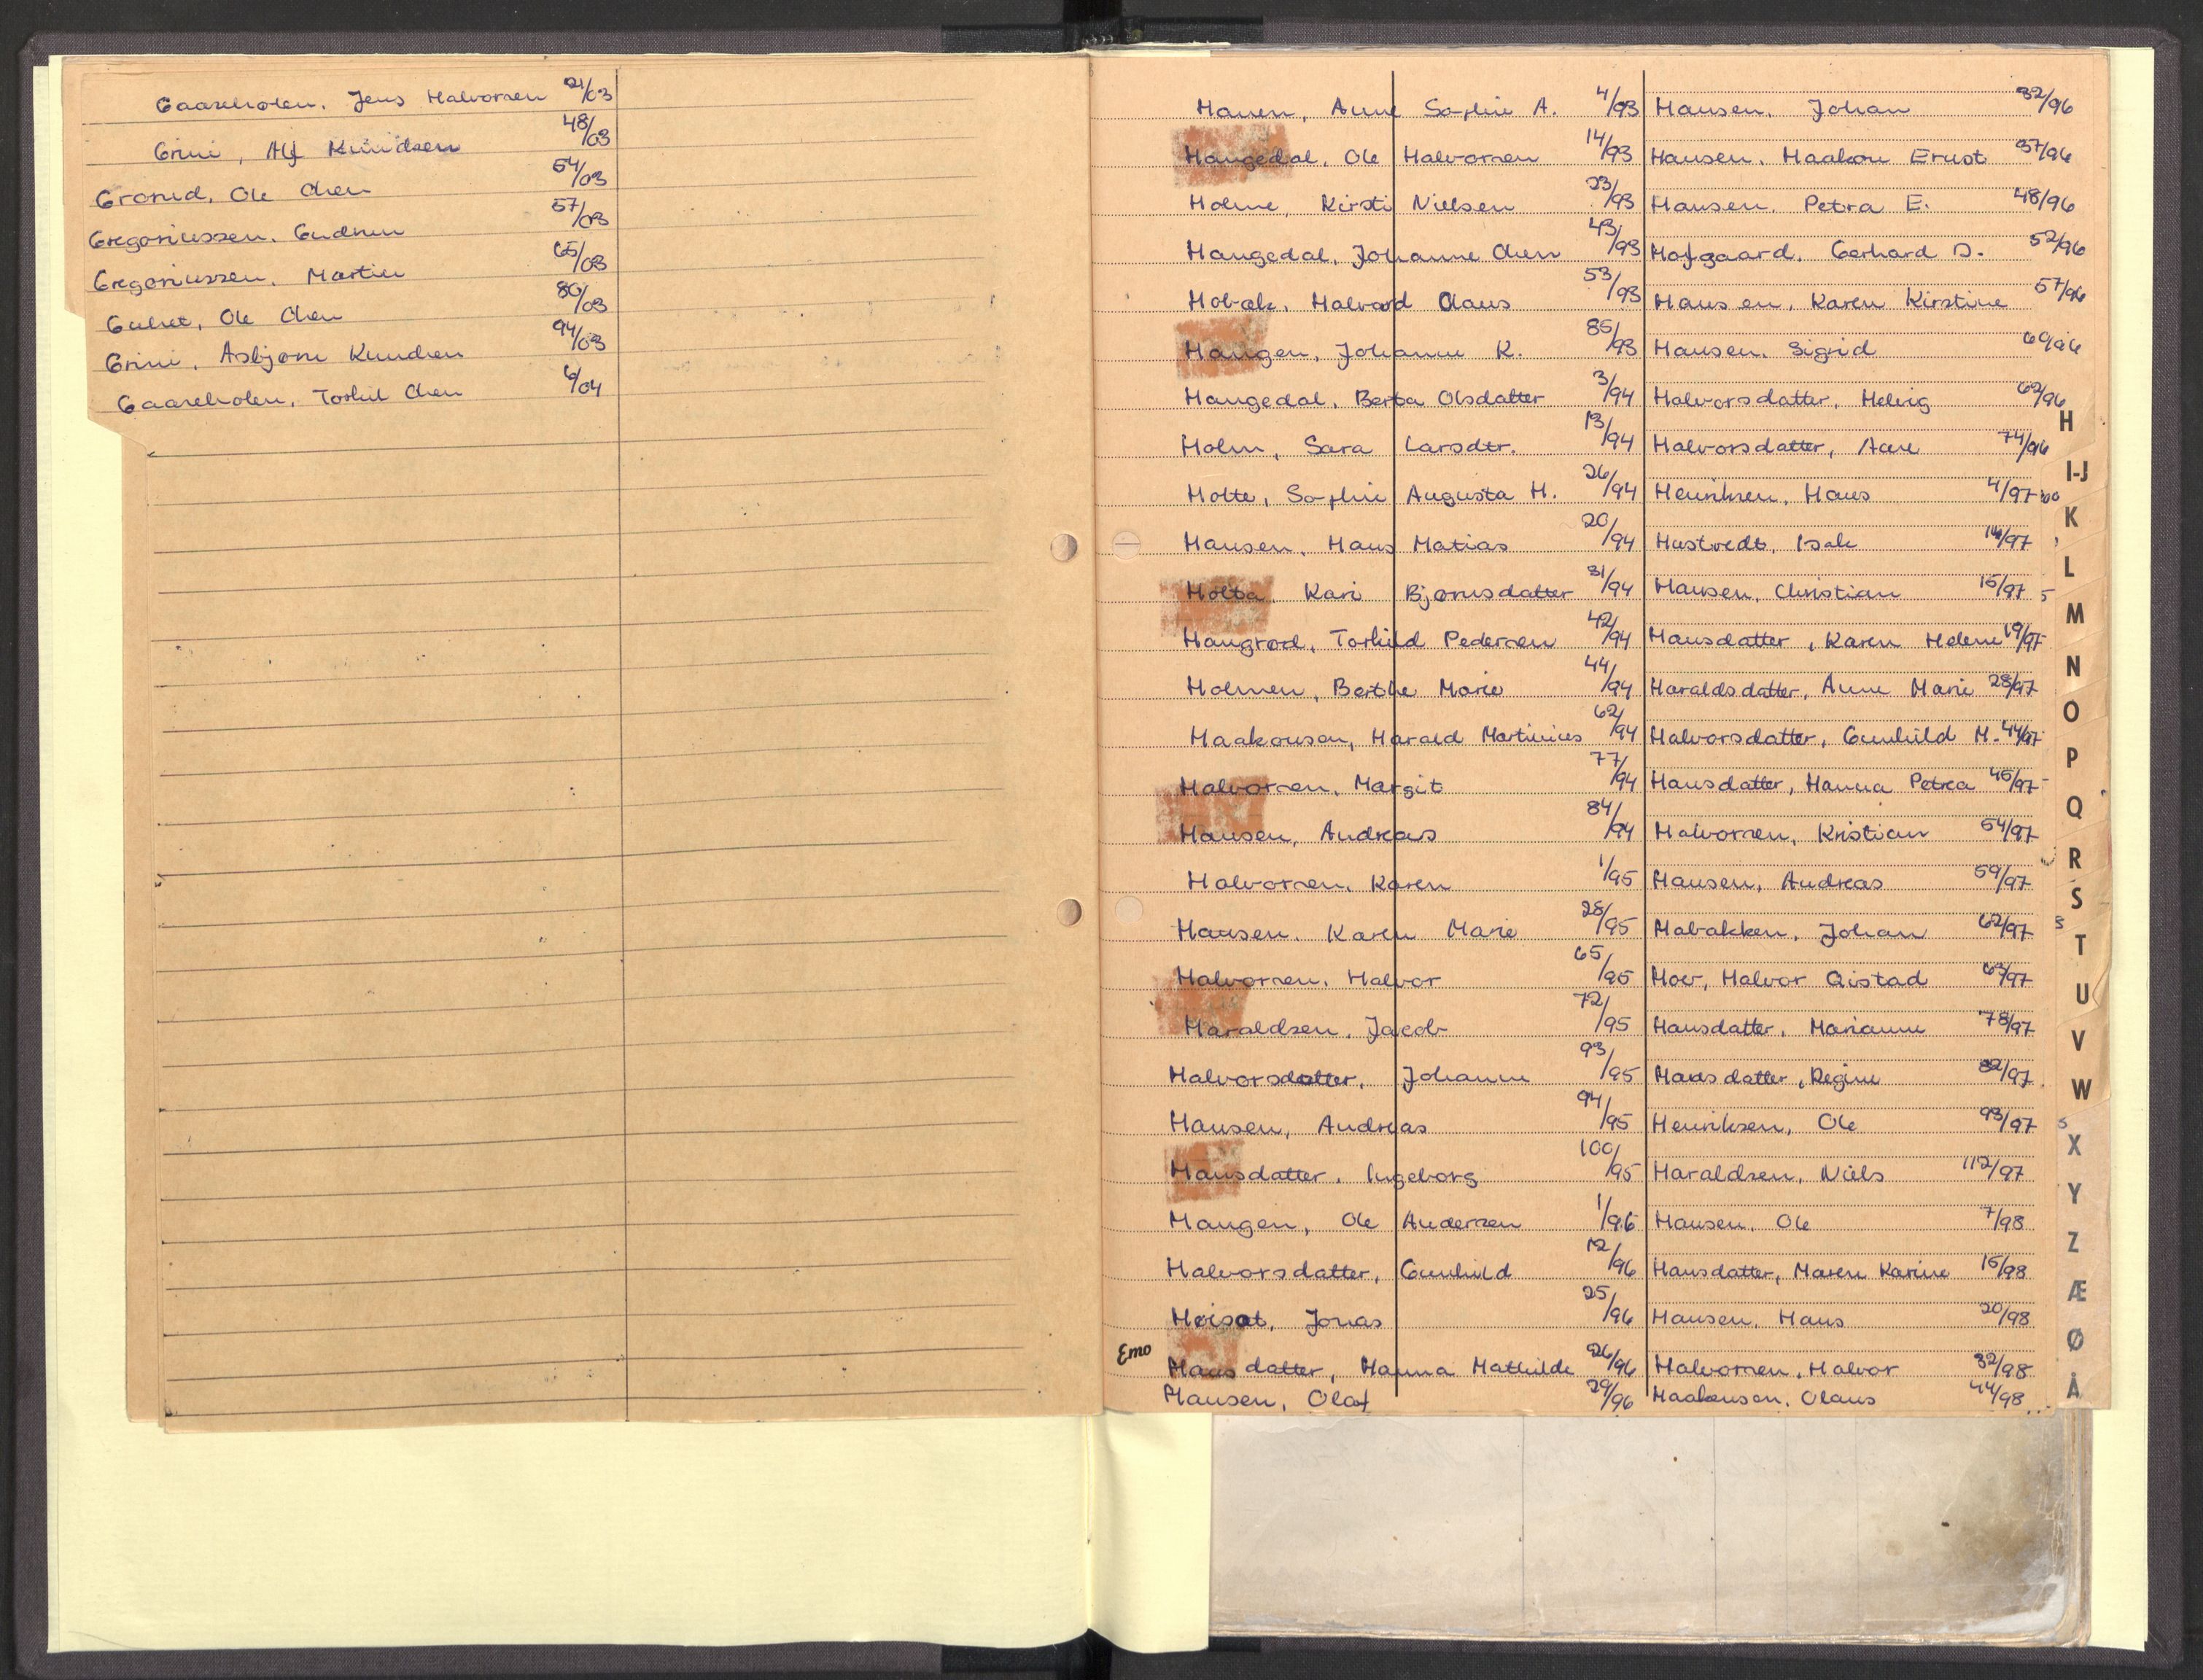 Gaaseholen, Jens Halvorsen 21/03
Grini, Alf Knudsen 48/03
Grorud, Ole Olsen 54/03
Gregoriussen, Gudrun 57/03
Gregoriussen, Martin 65/03
Gulset, Ole Olsen 80/03
Grini, Asbjørn Knudsen 94/03
Gaaseholen, Torhil Olsen 6/04
Hansen, Anne Sophie A. 4/93
Haugedal, Ole Halvorsen 14/93
Holme, Kirsti Nielsen 23/93
Haugedal, Johanne Olsen 43/93
Hobæk, Halvard Olaus 53/93
Haugen, Johanne K. 85/93
Haugedal, Berta Olsdatter 3/94
Holm, Sara Larsdtr. 13/94
Holte, Sophie Augusta H. 26/94
Hansen, Hans Matias 20/94
Holta, Kari Bjørnsdatter 31/94
Haugrød, Torhild Pedersen 42/94
Holmen, Berthe Marie 44/94
Haakonsen, Harald Martinius 62/94
Halvorsen, Margit 77/94
Hansen, Andreas 84/94
Halvorsen, Karen 1/95
Hansen, Karen Marie 28/95
Halvorsen, Halvor 65/95
Haraldsen, Jacob 72/95
Halvorsdatter, Johanne 93/95
Hansen, Andreas 94/95
Hansdatter, Ingeborg 100/95
Haugen, Ole Andersen 1/96
Halvorsdatter, Gunhild 12/96
Høisæt, Jonas 25/96
Emo Hansdatter, Hanna Mathilde 26/96
Hansen, Olaf 29/96
Hansen, Johan 32/96
Hansen, Haakon Ernst 37/96
Hansen, Petra E. 48/96
Hofgaard, Gerhard D. 52/96
Hansen, Karen Kirstine 57/96
Hansen, Sigrid 69/96
Halvorsdatter, Helvig 62/96
Halvorsdatter, Aase 74/96
Henriksen, Hans 4/97
Hustvedt, Isak 14/97
Hansen, Christian 15/97
Hansdatter, Karen Helene 19/97
Haraldsdatter, Anne Marie 28/97
Halvorsdatter, Gunhild M. 44/97
Hansdatter, Hanna Petrea 45/97
Halvorsen, Kristian 54/97
Hansen, Andreas 59/97
Habakken, Johan 62/97
Hoev, Halvor Qistad 63/97
Hansdatter, Marianne 78/97
Hansdatter, Regine 82/97
Henriksen, Ole 93/97
Haraldsen, Niels 112/97
Hansen, Ole 7/98
Hansdatter, Maren Karine 15/98
Hansen, Hans 20/98
Halvorsen, Halvor 32/98
Haakonsen, Olaus 44/98
H
I-J
K
L
M
N
O
P
Q
R
S
T
U
V
W
X
Y
Z
Æ
Ø
Å